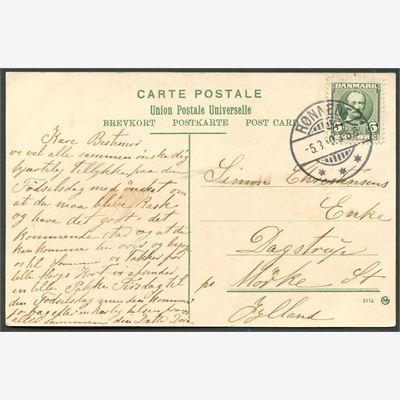 CARTE POSTALE
Union Postale Universelle
BREVKORT POSTKARTE POST CARD
DANMARK
5 ØRE 5
-5.3.10
Kære Bestemor
vi vil alle sammen ønske dig
hjertelig tillykke paa din
Fødselsdag med ønsket om
at du maa blive Rask
og have det godt i det
kommende Aar og at du
kan komme her over og
til Sommer vi takker for
lille Kort vi afsender
en lille Pakke Tirsdag til
den Fødselsdag men den kommer
hilsen fra
alle sammen
Simon Christensens
Enke
Dagstrup
pr Mørke St
Jylland